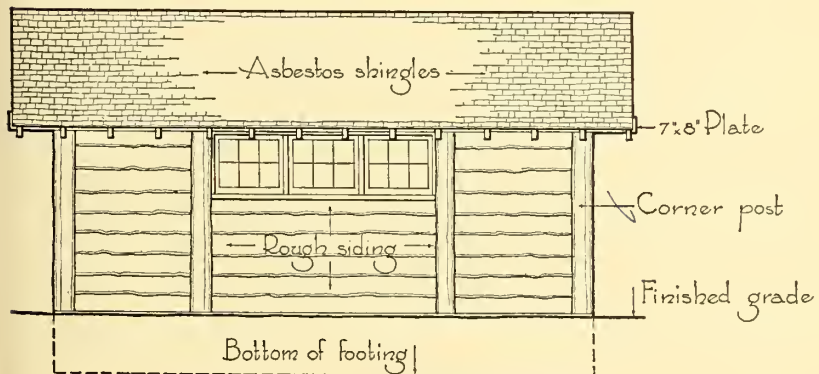 Asbestos shingles
7"x8" Plate
Corner post
Rough siding
Finished grade
Bottom of footing